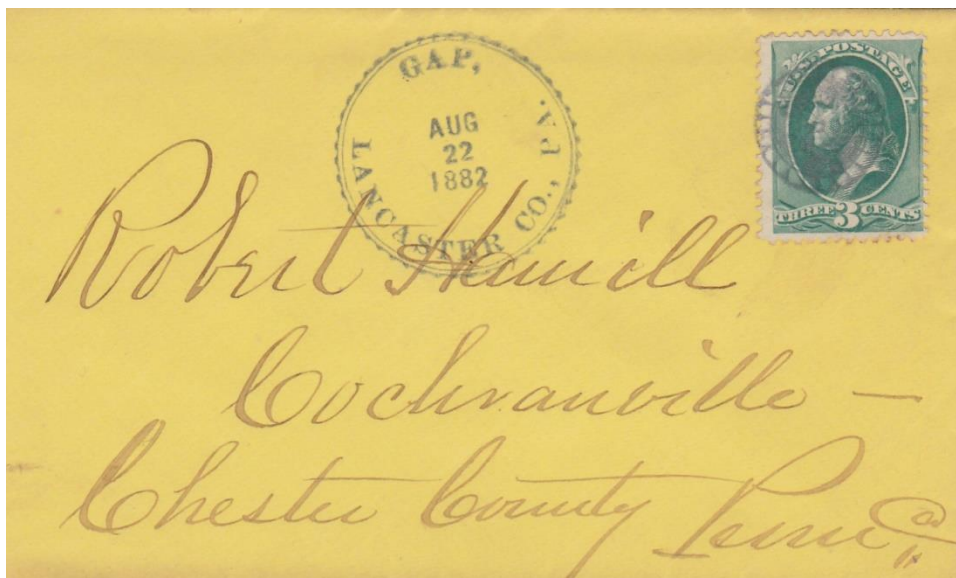 GAP,
LANCASTER CO., PA.
AUG
22
1882
U.S. POSTAGE
THREE 3 CENTS
Robert Hamill
Cochranville —
Chester County Penn a